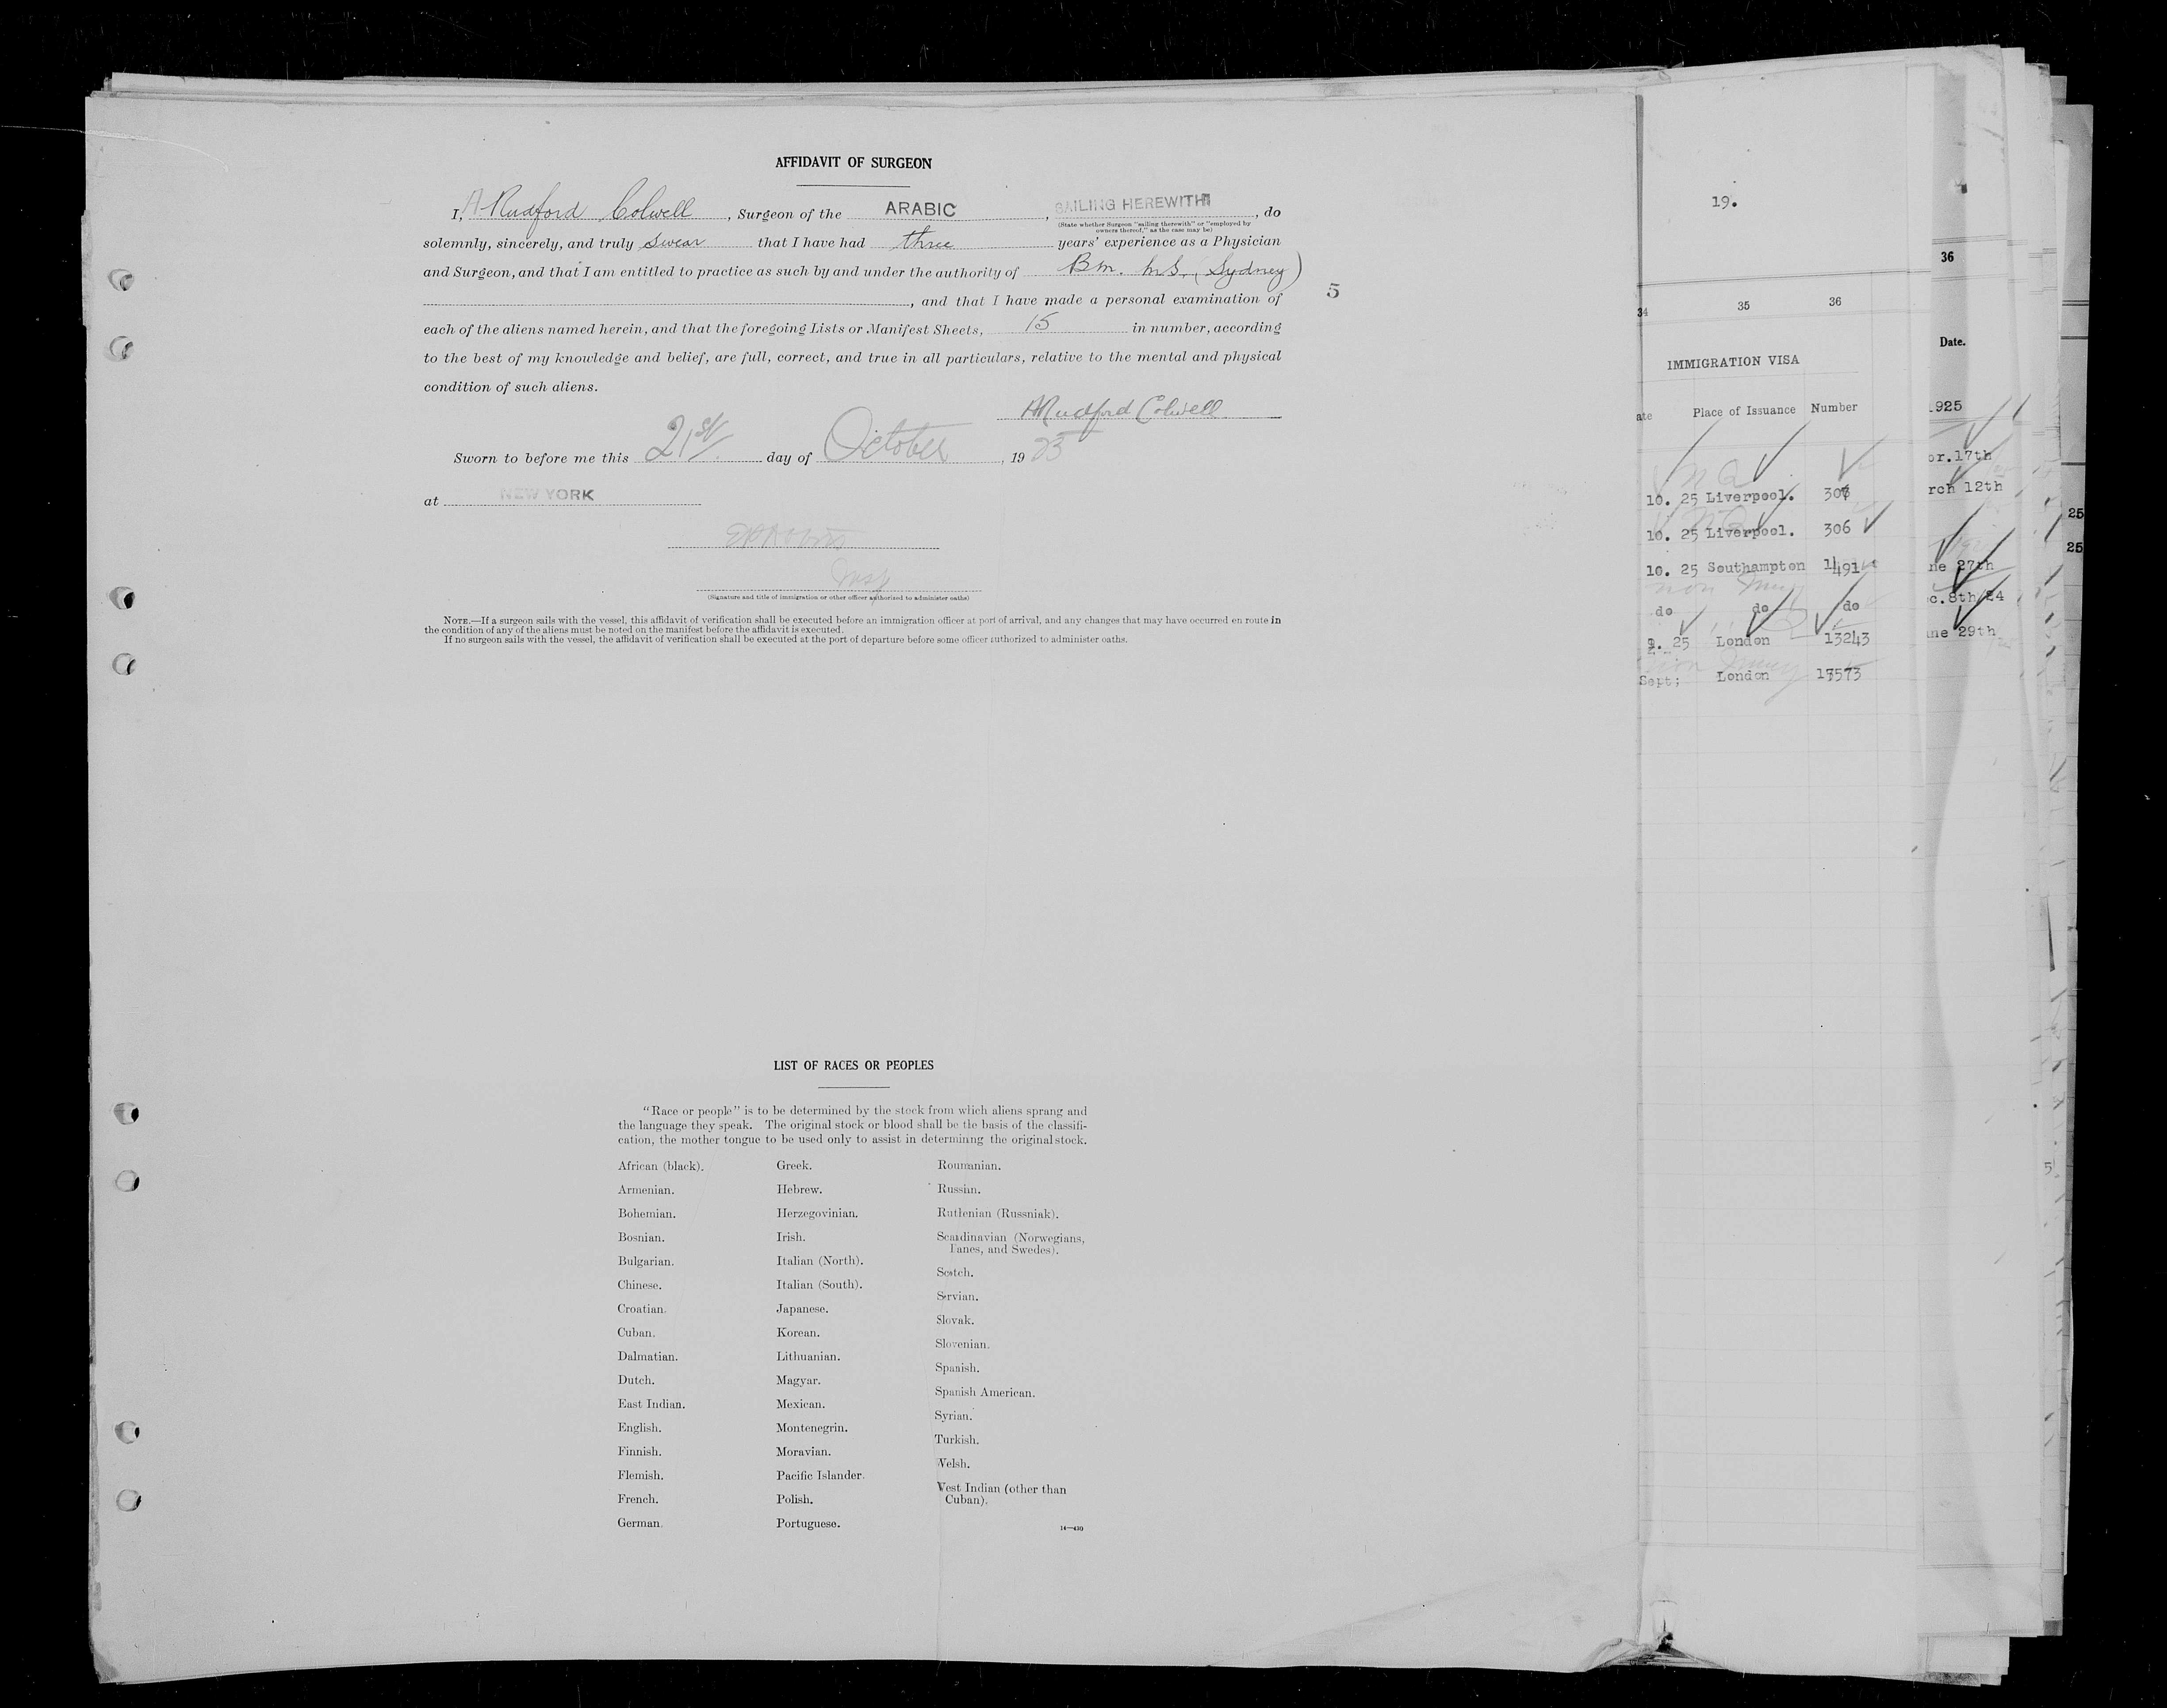 AFFIDAVIT OF SURGEON
I, A Rudford Colwell, Surgeon of the ARABIC, SAILING HEREWITH, do
(State whether Surgeon "sailing therewith" or "employed by
owners thereof," as the case may be)
solemnly, sincerely, and truly swear that I have had three years' experience as a Physician
and Surgeon, and that I am entitled to practice as such by and under the authority of B.M. M.S. (Sydney)
, and that I have made a personal examination of
each of the aliens named herein, and that the foregoing Lists or Manifest Sheets, 15 in number, according
to the best of my knowledge and belief, are full, correct, and true in all particulars, relative to the mental and physical
condition of such aliens.
A Rudford Colwell
Sworn to before me this 21st day of October, 19
at NEW YORK
Insp
(Signature and title of immigration or other officer authorized to administer oaths)
NOTE.—If a surgeon sails with the vessel, this affidavit of verification shall be executed before an immigration officer at port of arrival, and any changes that may have occurred en route in
the condition of any of the aliens must be noted on the manifest before the affidavit is executed.
If no surgeon sails with the vessel, the affidavit of verification shall be executed at the port of departure before some officer authorized to administer oaths.
5
LIST OF RACES OR PEOPLES
"Race or people" is to be determined by the stock from which aliens sprang and
the language they speak. The original stock or blood shall be the basis of the classifi-
cation, the mother tongue to be used only to assist in determining the original stock.
African (black).
Armenian.
Bohemian.
Bosnian.
Bulgarian.
Chinese.
Croatian.
Cuban.
Dalmatian.
Dutch.
East Indian.
English.
Finnish.
Flemish.
French.
German.
Greek.
Hebrew.
Herzegovinian.
Irish.
Italian (North).
Italian (South).
Japanese.
Korean.
Lithuanian.
Magyar.
Mexican.
Montenegrin.
Moravian.
Pacific Islander.
Polish.
Portuguese.
Roumanian.
Russian.
Ruthenian (Russniak).
Scandinavian (Norwegians,
Danes, and Swedes).
Scotch.
Servian.
Slovak.
Slovenian.
Spanish.
Spanish American.
Syrian.
Turkish.
Welsh.
West Indian (other than
Cuban).
14—430
19.
34 35 36
IMMIGRATION VISA
ate Place of Issuance Number
10. 25 Liverpool.
10. 25 Liverpool. 306
10. 25 Southampton 1491
do do do
25 London 13243
Sept; London 17573
36
Date.
1925
or.17th
rch 12th
ne 27th
c.8th/24
ne 29th
25
25
5